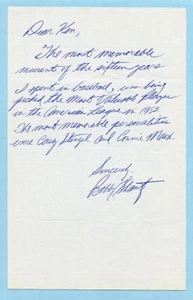 Dear Ken,
The most memorable
moment of the sixteen years
I spent in baseball, was being
picked the Most Valuable Player
in the American League in 1952
The most memorable personalities
were Casey Stengel and Connie Mack.
Sincerely,
Bobby Shantz